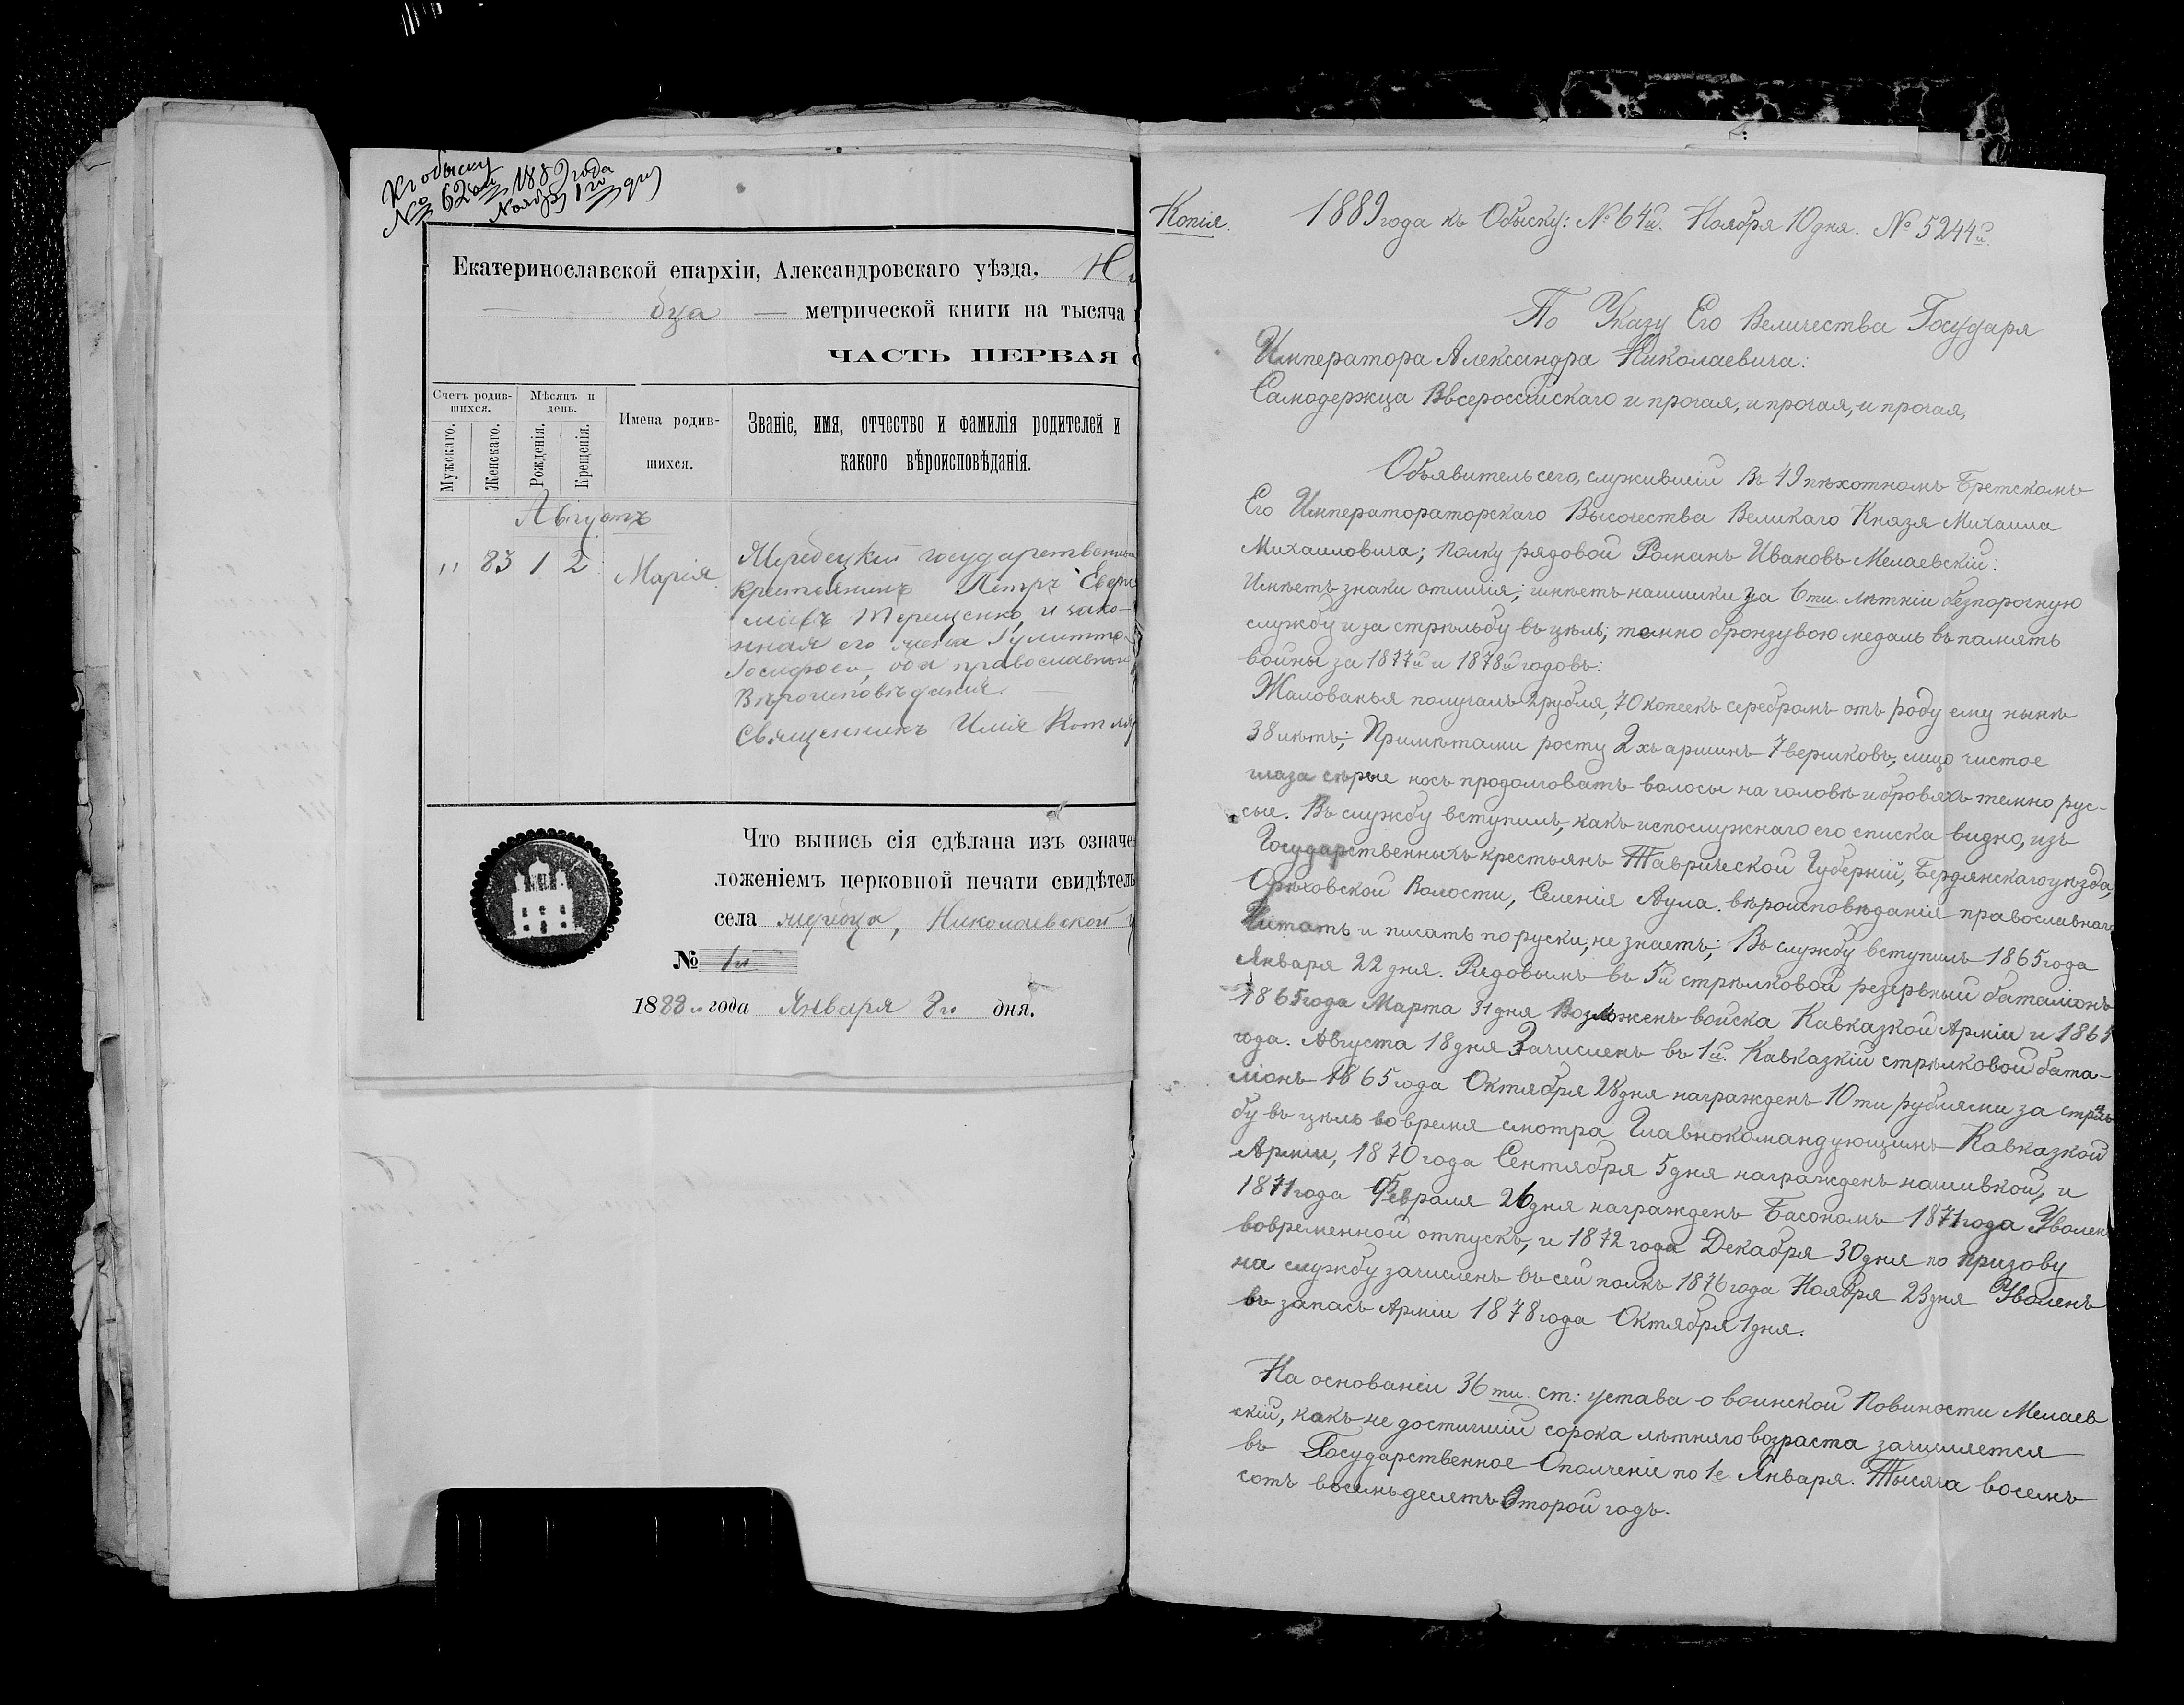 Къ обыску
№ 62ой 1889 года
Ноября 1го дня
Екатеринославской епархіи, Александровскаго уѣзда,
бца — метрической книги на тысяча
ЧАСТЬ ПЕРВАЯ
Счетъ родив-
шихся.
Мѣсяцъ и
день.
Мужскаго.
Женскаго.
Рожденія.
Крещенія.
Имена родив-
шихся.
Званіе, имя, отчество и фамилія родителей и
какого вѣроисповѣданія.
Августъ
" 83 1 2
Марія
Жеребецкій государственный
крестьянинъ Петръ
Терещенко, и зако-
нная его жена
Іосифова, оба православнаго
Вѣроисповѣданія.
Священникъ Илія
Что выпись сія сдѣлана изъ означен
ложеніемъ церковной печати свидѣтель
села жеребца, Николаевской
№ 1й
1888 года Января 8го дня.
Копія.
1889 года къ Обыску: № 64й. Ноября 10 дня. № 5244й.
По Указу Его Величества Государя
Императора Александра Николаевича:
Самодержца Ввсероссійскаго и прочая, и прочая, и прочая,
Объявитель сего, служившій Въ 49 пѣхотномъ Бретскомъ
Его Императораторскаго Высочества Великаго Князя Михаила
Михаиловича; Полку рядовой Романъ Ивановъ Мелаевскій:
Имѣетъ знаки отличія; имѣетъ нашивки за 6ти лѣтніи безпорочную
службу и за стрѣльбу въ цѣль; темно бронзувою медаль въ память
войны за 1877й и 1878й годовъ:
Жалованья получалъ 2 рубля, 70 копеекъ серебромъ отъ роду ему нынѣ
38 лѣтъ; Примѣтами росту 2хъ аршинъ 7 вершковъ, лицо чистое
глаза сѣрые носъ продолговатъ волосы на головѣ и бровяхъ темно рус-
сые. Въ службу вступилъ, какъ испослужнаго его списка видно, изъ
Государственныхъ крестьянъ Таврической Губерній, Бердянскаго уѣзда,
Орѣховской Волости, Селенія Аула. вѣроисповѣданія православнаго
Читать и писать по руски, не знаетъ; Въ службу вступилъ 1865 года
Января 22 дня. Рядовымъ въ 5й стрѣлковой резервный баталіонъ
1865 года Марта 31 дня войска Кавказкой Арміи и 1865
года. Августа 18 дня Зачисленъ въ 1й. Кавказкій стрѣлковой бата-
ліонъ 1865 года Октября 28 дня награжденъ 10ти рублями за стрѣль
бу въ цѣль вовремя смотра Главнокомандующимъ Кавказкой
Арміи, 1870 года Сентября 5 дня награжденъ нашивкой, и
1871 года Февраля 26 дня награжденъ Басономъ 1871 года Уволенъ
вовременной отпускъ, и 1872 года Декабря 30 дня по призову
на службу зачисленъ въ сей полкъ 1876 года Ноября 23 дня Уволенъ
въ запасъ Арміи 1878 года Октября 1 дня.
На основаніи 36ти. ст: устава о воинской Повиности Мелаев
скій, какъ не достигшій сорока лѣтняго возраста зачисляется
въ Государственное Ополченіе по 1е Января. Тысяча восемь
сотъ восемьдесятъ Второй годъ.